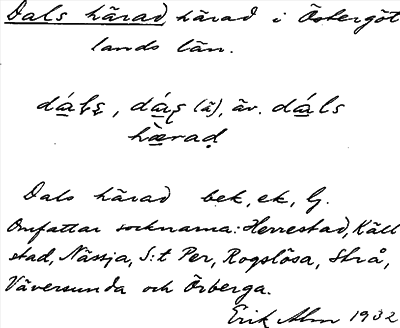 Dals härad, härad i Östergöt
lands län.
dáls, dáş (ä), äv. dáls
hæ̀raḍ
Dals härad bek, ek, G.
Omfattar socknarna: Herrestad, Käll
stad, Nässja, S:t Per, Rogslösa, Strå,
Väversunda och Örberga.
Erik Alm 1932